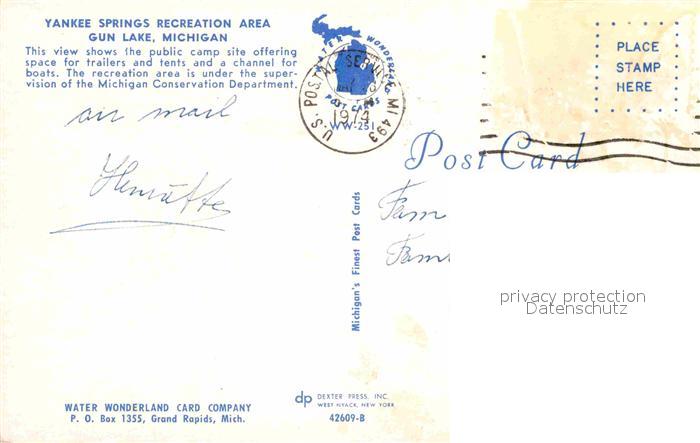 YANKEE SPRINGS RECREATION AREA
GUN LAKE, MICHIGAN
This view shows the public camp site offering
space for trailers and tents and a channel for
boats. The recreation area is under the super-
vision of the Michigan Conservation Department.
air mail
WATER WONDERLAND
POST CARDS
WW-251
U.S. POSTAL SERVICE MI 493
1974
PLACE
STAMP
HERE
Post Card
Fam
Fam
Michigan's Finest Post Cards
privacy protection
Datenschutz
WATER WONDERLAND CARD COMPANY
P. O. Box 1355, Grand Rapids, Mich.
dp DEXTER PRESS, INC.
WEST NYACK, NEW YORK
42609-B